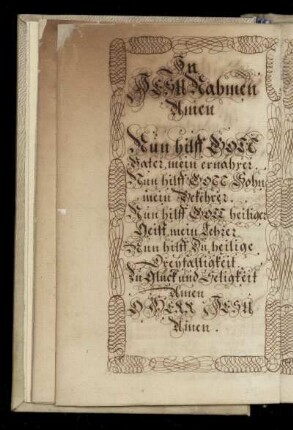 In
JESU Nahmen
Amen
Nun hilff GOTT
Vater, mein ernährer
Nun hilff GOTT Sohn
mein Bekehrer
Nun hilff GOTT heiliger
Geist, mein Lehrer
Nun hilff Du heilige
Dreyfaltigkeit
Zu Glück und Seligkeit
Amen
O HERR JESU
Amen.